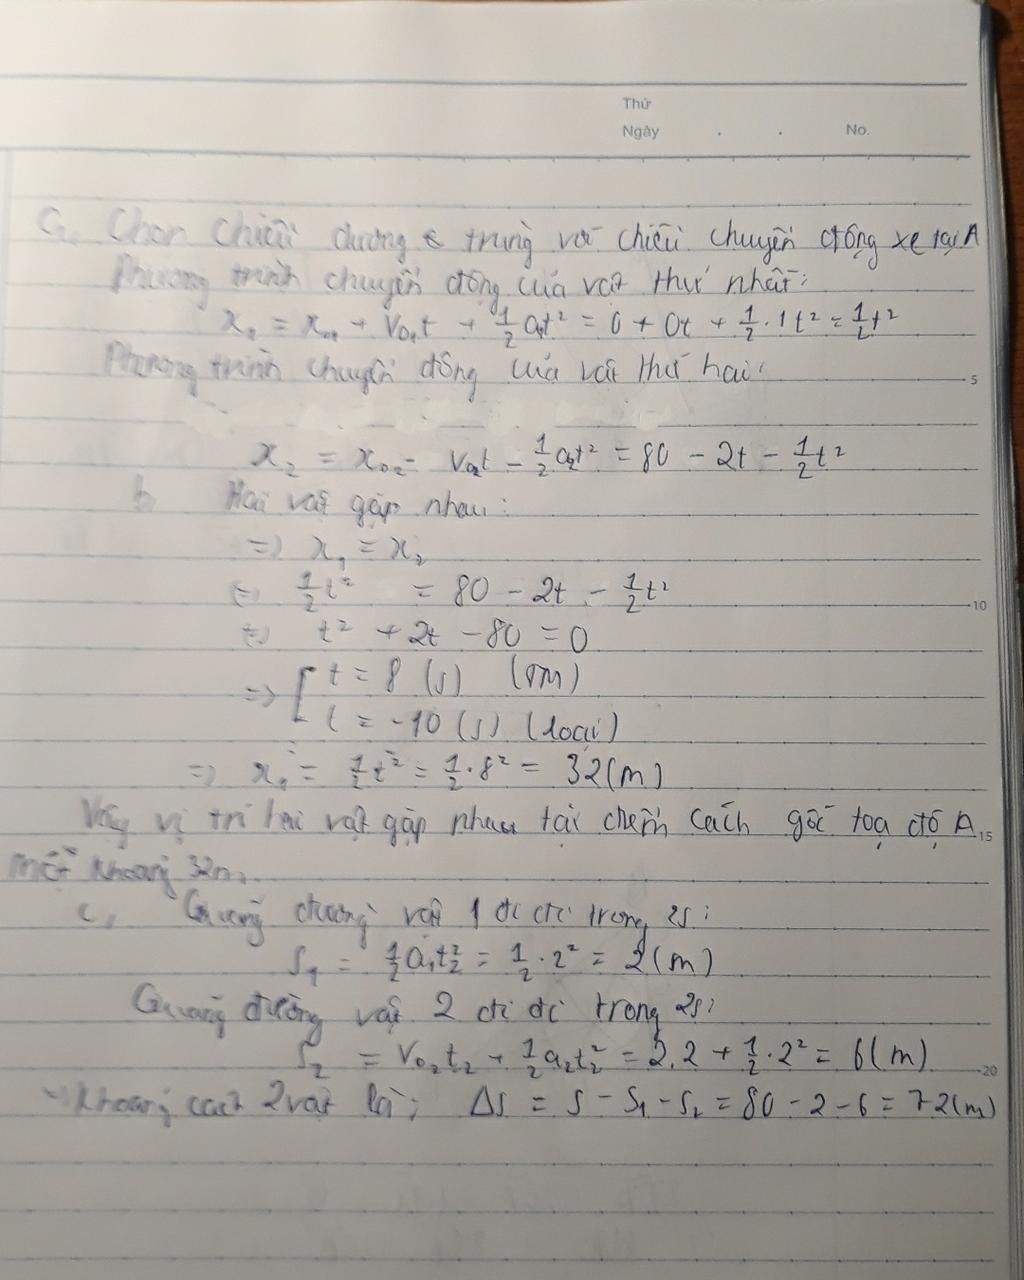 Thứ
Ngày . . No.
a, Chọn chiều dương trùng với chiều chuyển động xe tại A
Phương trình chuyển động của vật thứ nhất:
x₁ = x₀₁ + v₀₁t + 1/2 a₁t² = 0 + 0t + 1/2 . 1t² = 1/2 t²
Phương trình chuyển động của vật thứ hai:
5
x₂ = x₀₂ - v₀₂t - 1/2 a₂t² = 80 - 2t - 1/2 t²
b Hai vật gặp nhau:
=> x₁ = x₂
<=> 1/2 t² = 80 - 2t - 1/2 t²
10
<=> t² + 2t - 80 = 0
=> [ t = 8 (s) (TM)
t = -10 (s) (loại)
=> x₁ = 1/2 t² = 1/2 . 8² = 32 (m)
Vậy vị trí hai vật gặp nhau tại cách gốc toạ độ A
15
một khoảng 32m.
c, Quãng đường vật 1 đi đi trong 2s:
S₁ = 1/2 a₁t₂² = 1/2 . 2² = 2 (m)
Quãng đường vật 2 đi đi trong 2s:
S₂ = v₀₂t₂ + 1/2 a₂t₂² = 2.2 + 1/2 . 2² = 6 (m)
20
=> Khoảng cách 2 vật là: Δs = s - s₁ - s₂ = 80 - 2 - 6 = 72 (m)